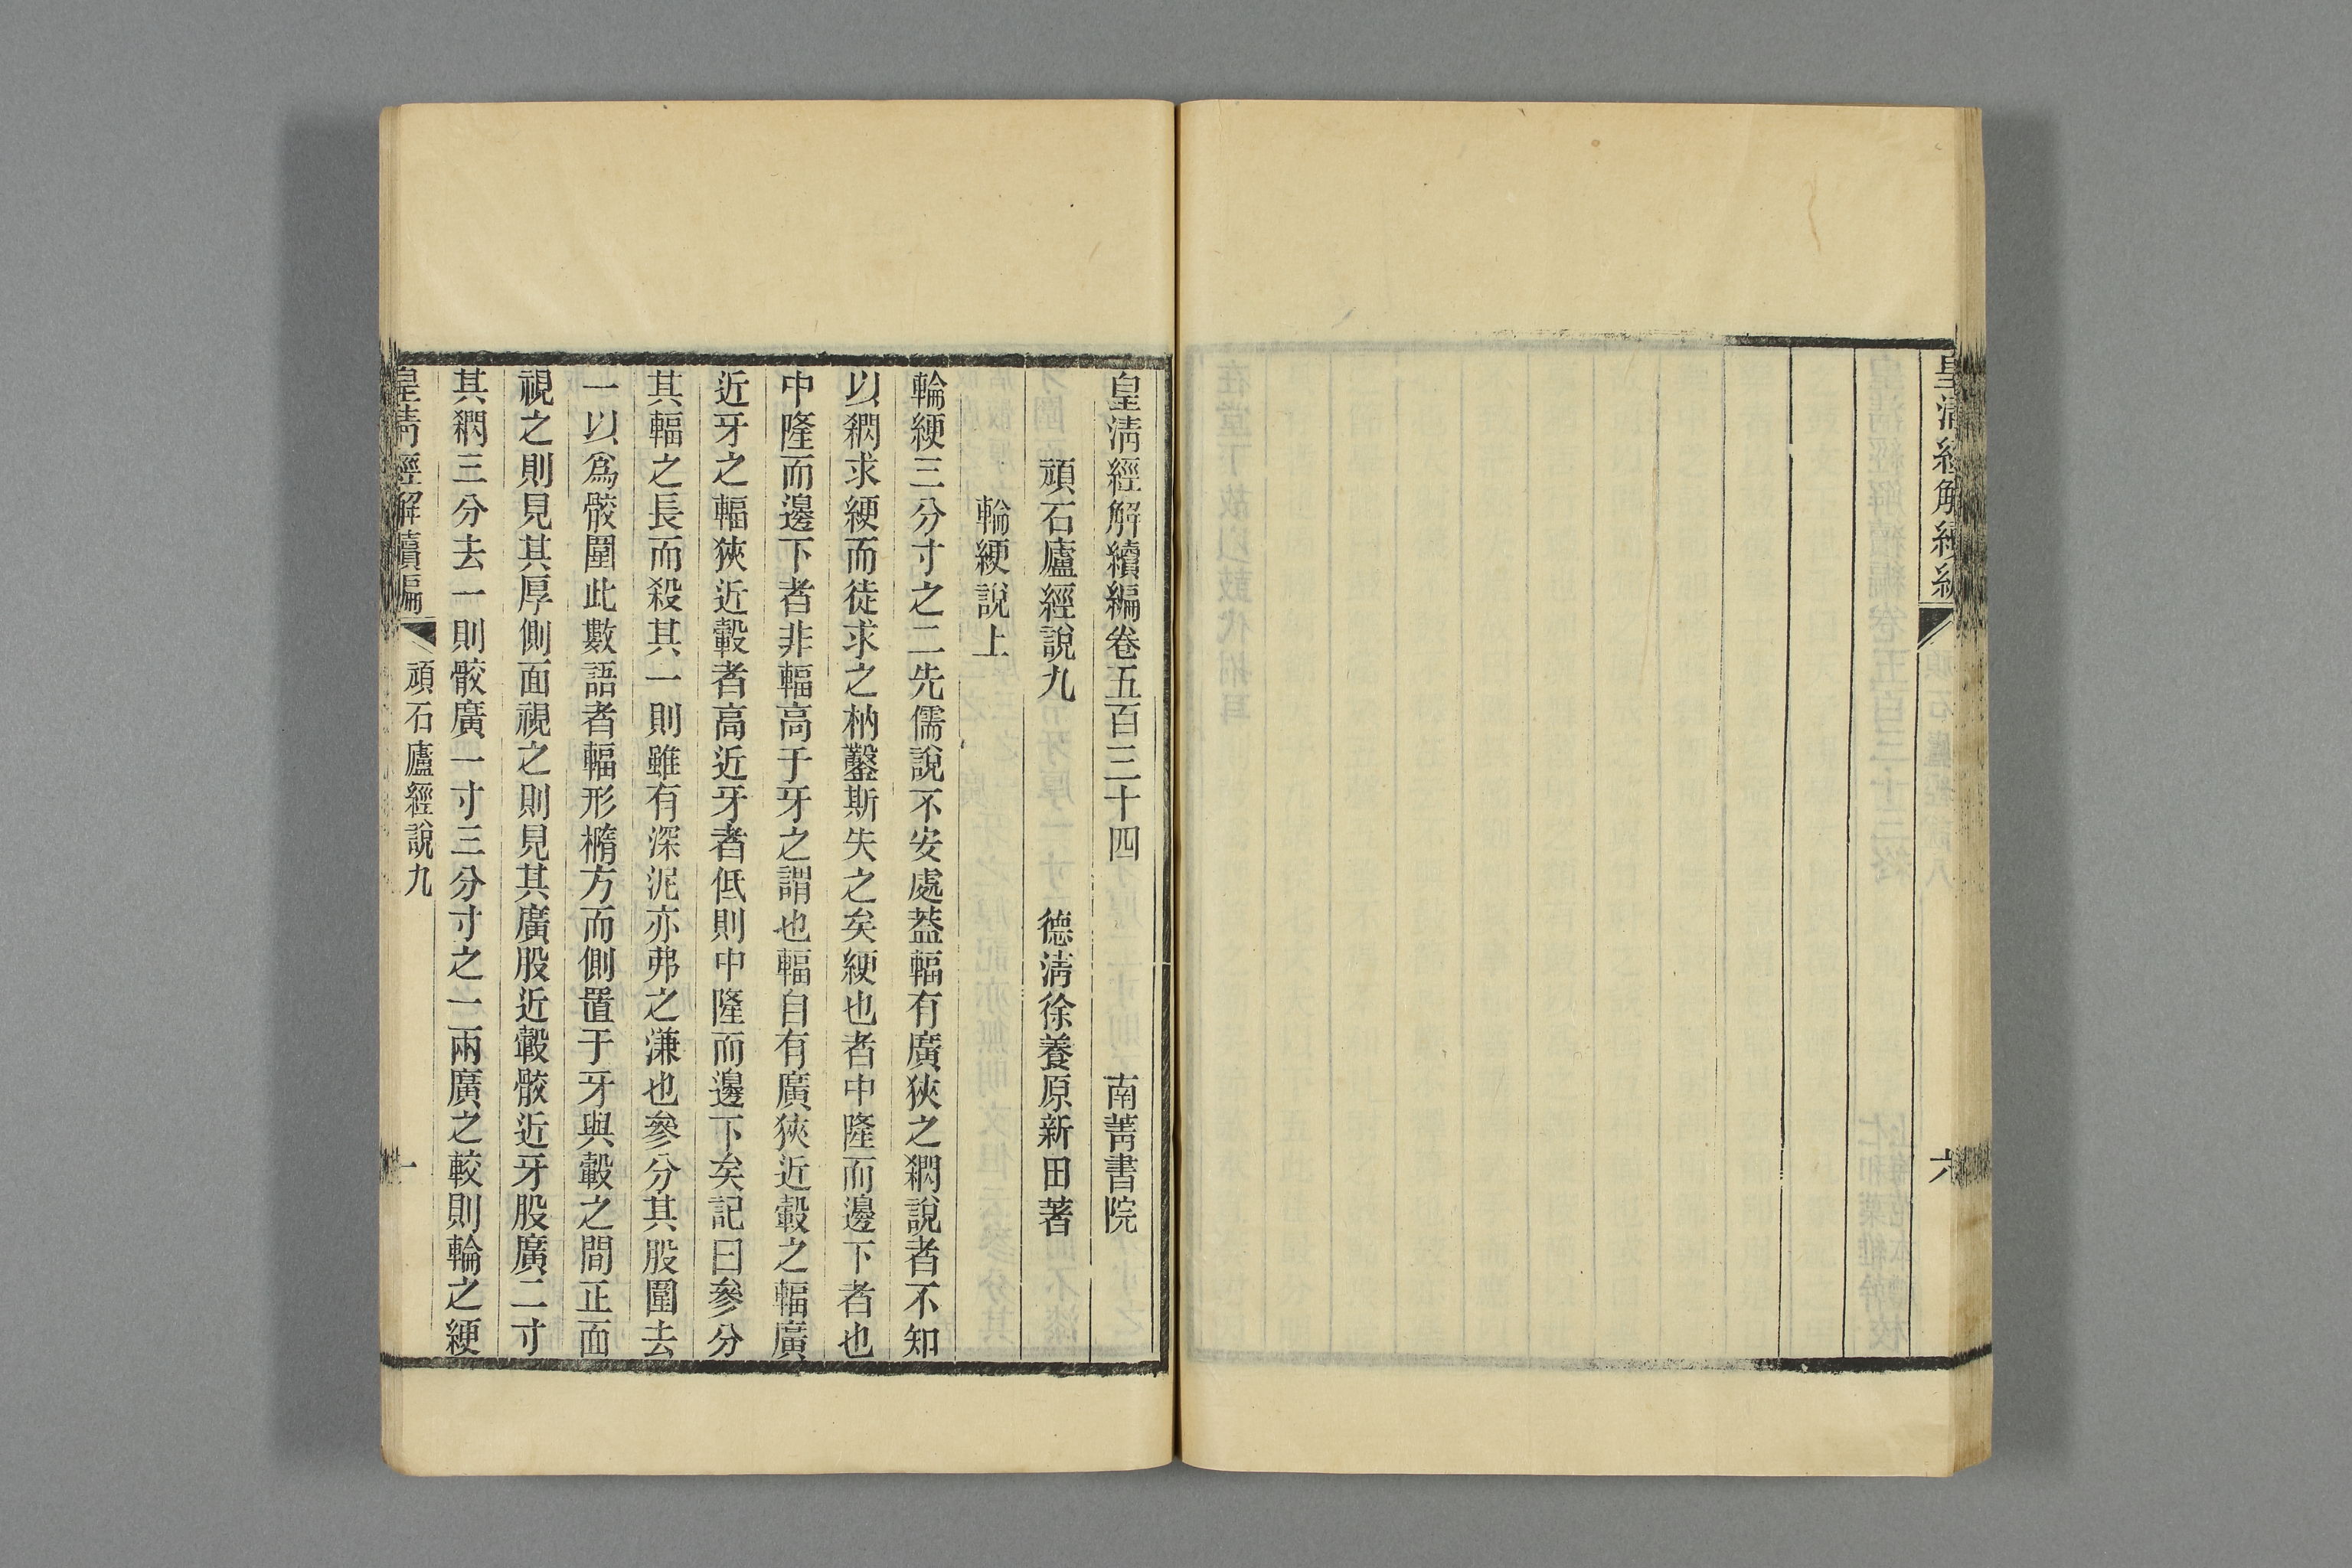 皇清經解續編
六
皇清經解續編卷五百三十四 南菁書院
頑石廬經說九 德清徐養原新田著
輪綆說上
輪綆三分寸之二先儒說不安處葢輻有廣狹之綱說者不知
以綱求綆而徒求之枘鑿斯失之矣綆也者中隆而邊下者也
中隆而邊下者非輻高于牙之謂也輻自有廣狹近轂之輻廣
近牙之輻狹近轂者高近牙者低則中隆而邊下矣記曰參分
其輻之長而殺其一則雖有深泥亦弗之溓也參分其股圍去
一以爲骹圍此數語者輻形橢方而側置于牙與轂之間正面
視之則見其厚側面視之則見其廣股近轂骹近牙股廣二寸
其綱三分去一則骹廣一寸三分寸之一兩廣之較則輪之綆
皇清經解續編 頑石廬經說九 一